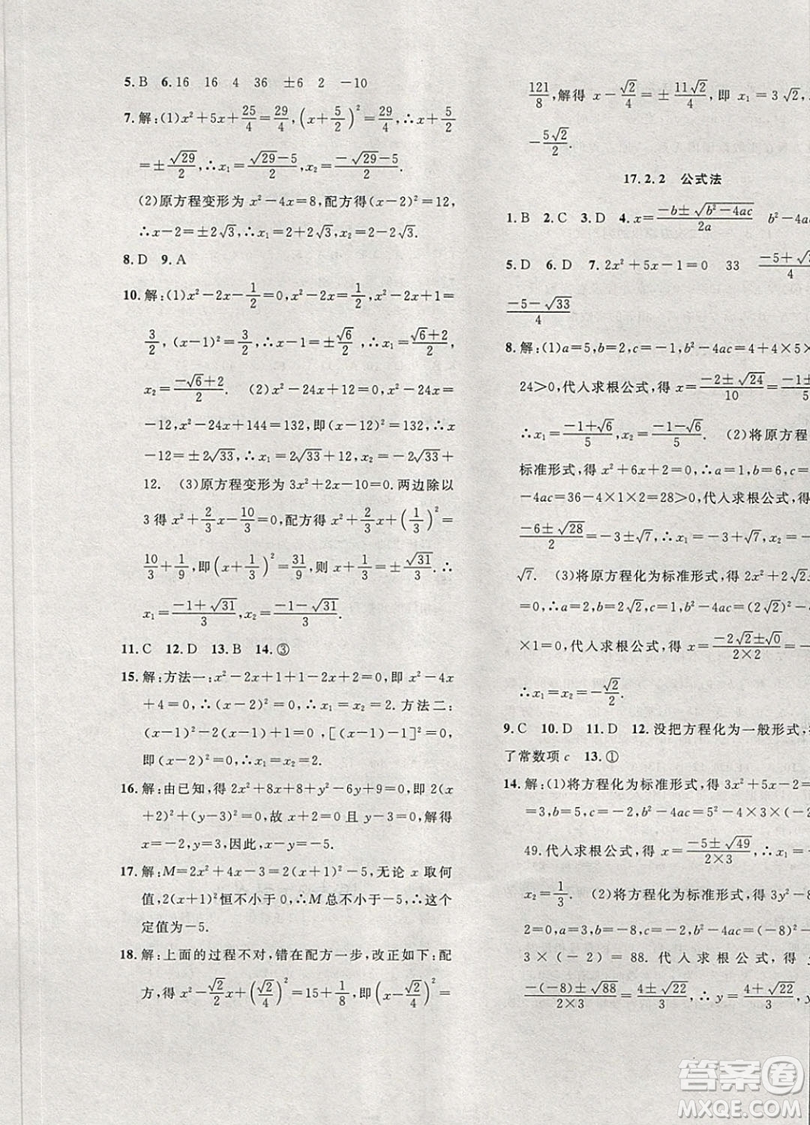 5. B  6. 16  16  4  36  ±6  2  －10
7. 解:(1)x²＋5x＋25/4＝29/4,(x＋5/2)²＝29/4,∴x＋5/2
＝±√29/2,∴x₁＝(√29－5)/2,x₂＝(－√29－5)/2.
(2)原方程变形为 x²－4x＝8,配方得(x－2)²＝12,
∴x－2＝±2√3,∴x₁＝2＋2√3,x₂＝2－2√3.
8. D  9. A
10. 解:(1)x²－2x－1/2＝0,x²－2x＝1/2,x²－2x＋1＝
3/2,(x－1)²＝3/2,∴x－1＝±√6/2,∴x₁＝(√6＋2)/2,
x₂＝(－√6＋2)/2.  (2)x²－24x＋12＝0,x²－24x＝
－12,x²－24x＋144＝132,即(x－12)²＝132,∴x
－12＝±2√33,∴x₁＝2√33＋12,x₂＝－2√33＋
12.  (3)原方程变形为 3x²＋2x－10＝0.两边除以
3 得 x²＋2/3x－10/3＝0,配方得 x²＋2/3x＋(1/3)²＝
10/3＋1/9,即(x＋1/3)²＝31/9,所以 x＋1/3＝±√31/3,∴
x₁＝(－1＋√31)/3,x₂＝(－1－√31)/3.
11. C  12. D  13. B  14. ③
15. 解:方法一:x²－2x＋1＋1－2x＋2＝0,即 x²－4x
＋4＝0,∴(x－2)²＝0,∴x₁＝x₂＝2.方法二:
(x－1)²－2(x－1)＋1＝0,[(x－1)－1]²＝0,∴
即(x－2)²＝0,∴x₁＝x₂＝2.
16. 解:由已知,得 2x²＋8x＋8＋y²－6y＋9＝0,即 2(x
＋2)²＋(y－3)²＝0,故 x＋2＝0 且 y－3＝0,解得
x＝－2,y＝3,因此,x－y＝－2－3＝－5.
17. 解:M＝2x²＋4x－3＝2(x＋1)²－5,无论 x 取何
值,2(x＋1)²恒不小于 0,∴M 总不小于－5,这个
定值为－5.
18. 解:上面的过程不对,错在配方一步,改正如下:配
方,得 x²－√2/2x＋(√2/4)²＝15＋1/8,即(x－√2/4)²＝
121/8,解得 x－√2/4＝±11√2/4,即 x₁＝3√2,
－5√2/2.
17.2.2  公式法
1. B  2. C  3. D  4. x＝(－b±√(b²－4ac))/2a  b²－4a
5. D  6. D  7. 2x²＋5x－1＝0  33  (－5＋√
(－5－√33)/4
8. 解:(1)a＝5,b＝2,c＝－1,b²－4ac＝4＋4×5×
24＞0,代入求根公式,得 x＝(－2±√24)/10＝(－1±√6)/5
∴x₁＝(－1＋√6)/5,x₂＝(－1－√6)/5.  (2)将原方程
标准形式,得 x²＋6x＋2＝0.∵a＝1,b＝6,
－4ac＝36－4×1×2＝28＞0,代入求根公式,得
(－6±√28)/2＝－3±√7,∴x₁＝－3＋√7,x₂＝
√7.  (3)将原方程化为标准形式,得 2x²＋2
＝0.∵a＝2,b＝2√2,c＝1,b²－4ac＝(2√2)²－
×1＝0,代入求根公式,得 x＝(－2√2±√0)/(2×2)＝
∴x₁＝x₂＝－√2/2.
9. C  10. D  11. D  12. 没把方程化为一般形式,
了常数项 c  13. ①
14. 解:(1)将方程化为标准形式,得 3x²＋5x－2
＝3,b＝5,c＝－2,b²－4ac＝5²－4×3×(
49.代入求根公式,得 x＝(－5±√49)/(2×3),∴x₁＝
x₂＝1/3.  (2)将方程化为标准形式,得 3y²－8
2＝0,a＝3,b＝－8,c＝－2,b²－4ac＝(－8)²－
3×(－2)＝88.代入求根公式,得
(－(－8)±√88)/(2×3)＝(4±√22)/3,∴y＝(4＋√22)/3,y＝
答案圈
MXQE.COM